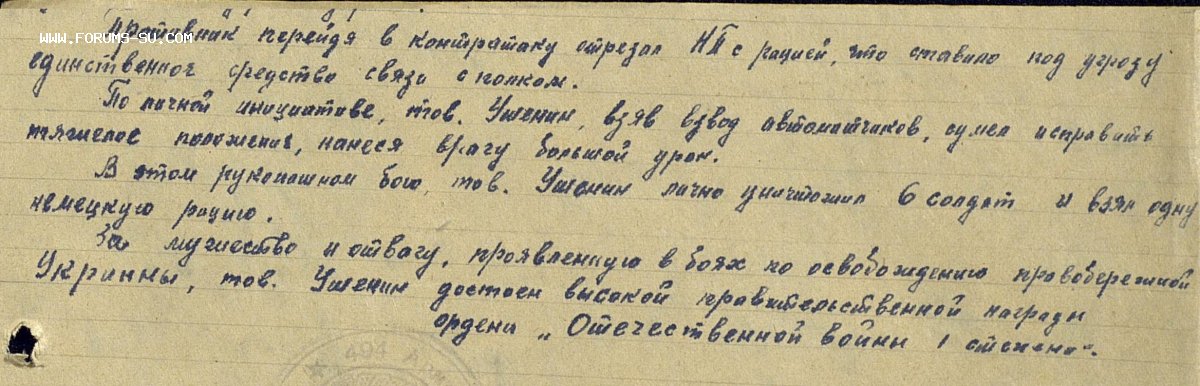 Противник перейдя в контратаку отрезал НП с рацией, что ставило под угрозу
www.forums-su.com
единственное средство связи с полком.
По личной инициативе, тов. Ушенин, взяв взвод автоматчиков, сумел исправить
тяжелое положение, нанеся врагу большой урон.
В этом рукопашном бою, тов. Ушенин лично уничтожил 6 солдат и взял одну
немецкую рацию.
За мужество и отвагу, проявленную в боях по освобождению правобережной
Украины, тов. Ушенин достоен высокой правительственной награды
ордена „Отечественной войны 1 степени".
494